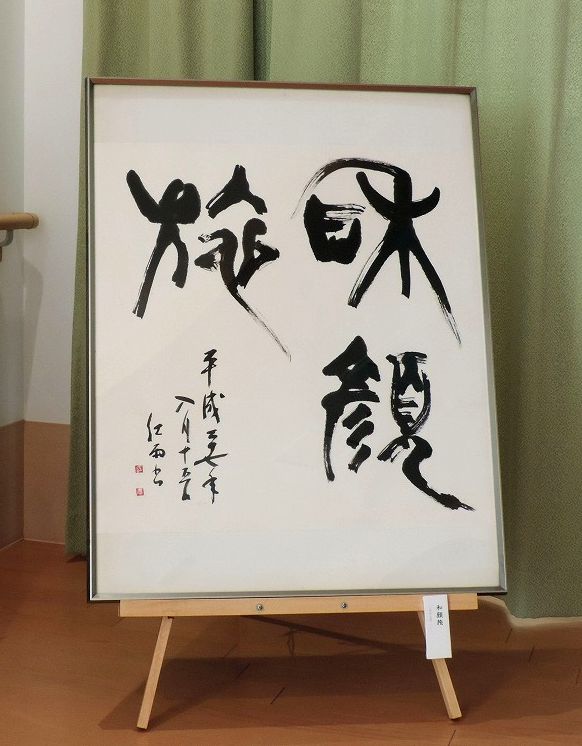 和顔
施
平成二十七年
八月十五日
紅雨書
和顔施